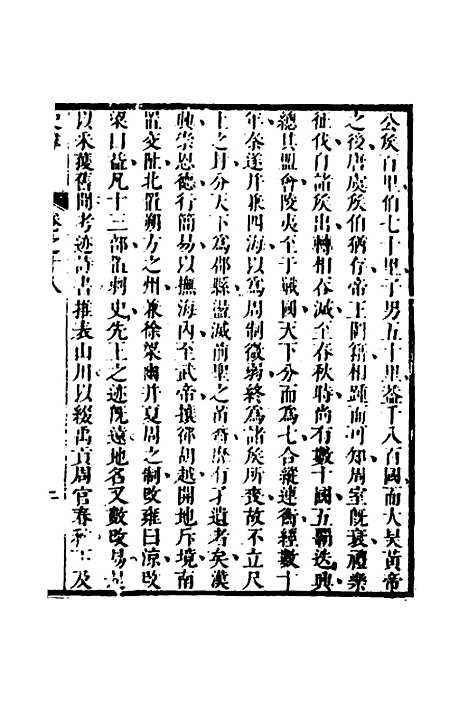 公矦百里伯七十里子男五十里蓋千八百國而大昊黃帝
之後唐虞矦伯猶存帝王圖籍相踵而可知周室旣衰禮樂
征伐自諸矦出轉相吞滅至春秋時尚有數十國五覇迭興
總其盟會陵夷至于戰國天下分而爲七合縱連衡經數十
年秦遂幷兼四海以爲周制微弱終爲諸矦所喪故不立尺
土之封分天下爲郡縣盪滅前聖之苗裔靡有孑遺者矣漢
興崇恩德行簡易以撫海內至武帝攘卻胡越開地斥境南
置交阯北置朔方之州兼徐梁幽幷夏周之制改雍曰涼改
梁曰益凡十三部置刺史先王之迹旣遠地名又數改易是
以采獲舊聞考迹詩書推表山川以綴禹貢周官春秋下及
卷之十八